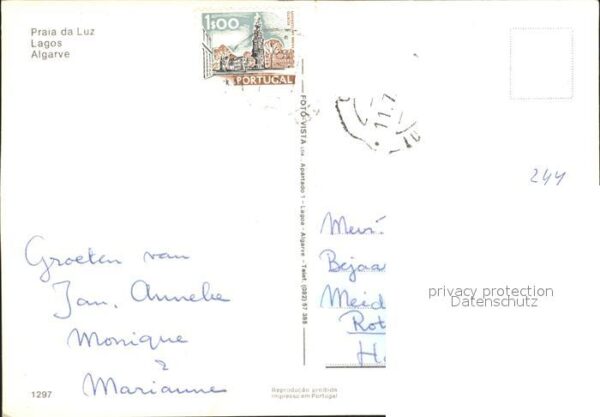 Praia da Luz
Lagos
Algarve
1$00
PORTUGAL
FOTO-VISTA Lda. Apartado 1 - Lagoa - Algarve - Telef. (082) 57 388
244
Groeten van
Jan, Anneke
Monique
&
Marianne
Bejaa
Meid
Rot
H
privacy protection
Datenschutz
1297
Reprodução proibida
Impresso em Portugal